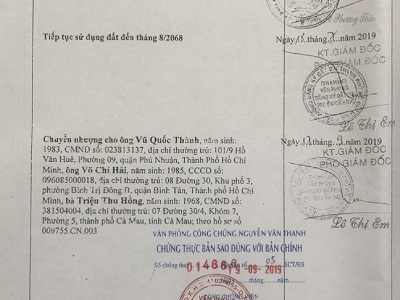 Tiếp tục sử dụng đất đến tháng 8/2068
Ngày tháng 2019
KT.GIÁM ĐỐC
PHÓ GIÁM ĐỐC
Lê Thị Em
Chuyển nhượng cho ông Vũ Quốc Thành, năm sinh:
1983, CMND số: 023813137, địa chỉ thường trú: 101/9 Hồ
Văn Huê, Phường 09, quận Phú Nhuận, Thành Phố Hồ Chí
Minh, ông Võ Chí Hải, năm sinh: 1985, CCCD số:
096085000018, địa chỉ thường trú: 08 Đường 30, Khu phố 3,
phường Bình Trị Đông B, quận Bình Tân, Thành phố Hồ Chí
Minh, bà Triệu Thu Hồng, năm sinh: 1968, CMND số:
381504004, địa chỉ thường trú: 07 Đường 30/4, Khóm 7,
Phường 5, thành phố Cà Mau, tỉnh Cà Mau; theo hồ sơ
009755.CN.003
Ngày tháng 2019
KT.GIÁM ĐỐC
PHÓ GIÁM ĐỐC
Lê Thị Em
VĂN PHÒNG CÔNG CHỨNG NGUYỄN VĂN THANH
CHỨNG THỰC BẢN SAO ĐÚNG VỚI BẢN CHÍNH
Số chứng thực 014860 05 SCT/BS
19-09-2019